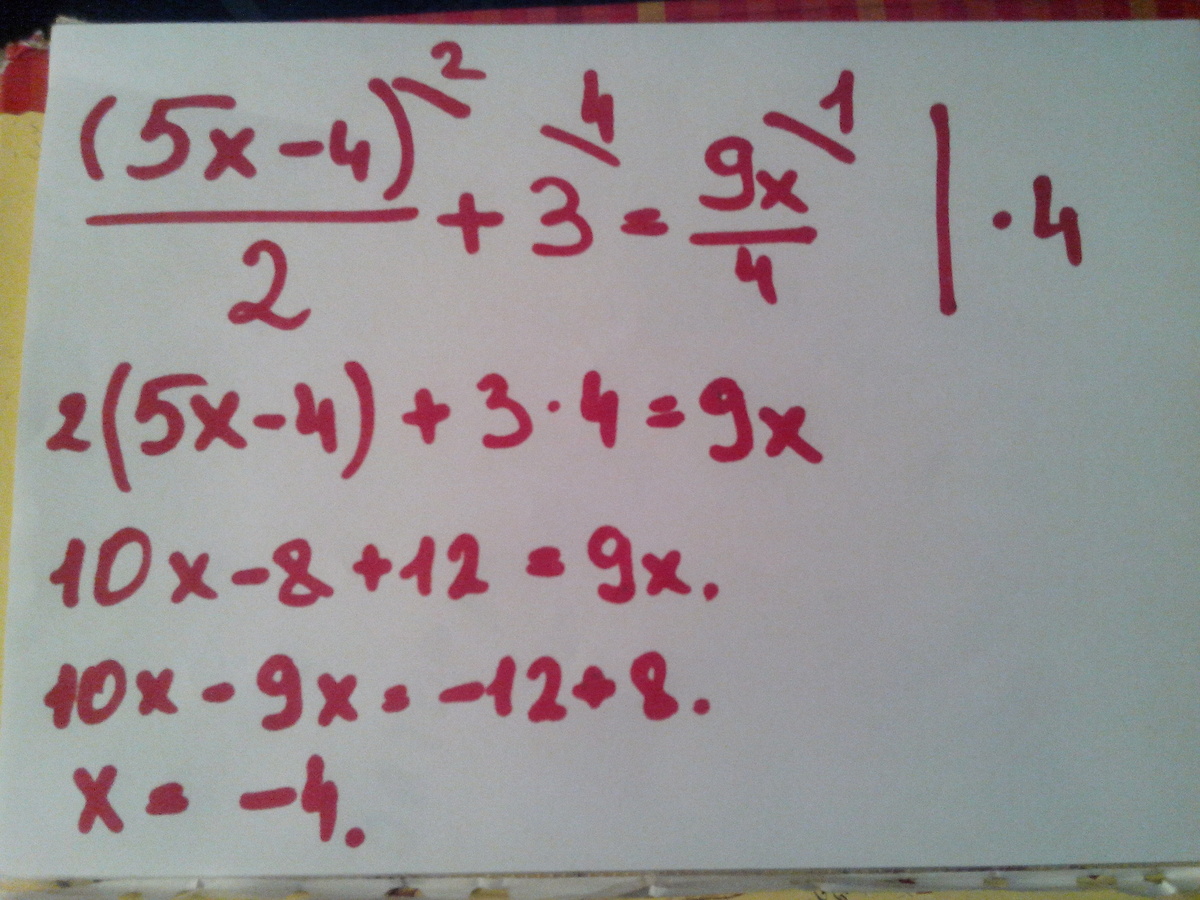 (5x-4)\2/2 + 3\4 = 9x\1/4 | · 4
2(5x-4) + 3·4 = 9x
10x-8+12 = 9x.
10x-9x=-12+8.
x = -4.